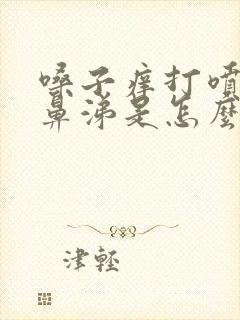 嗓子痒打喷
鼻涕是怎麼
津輕